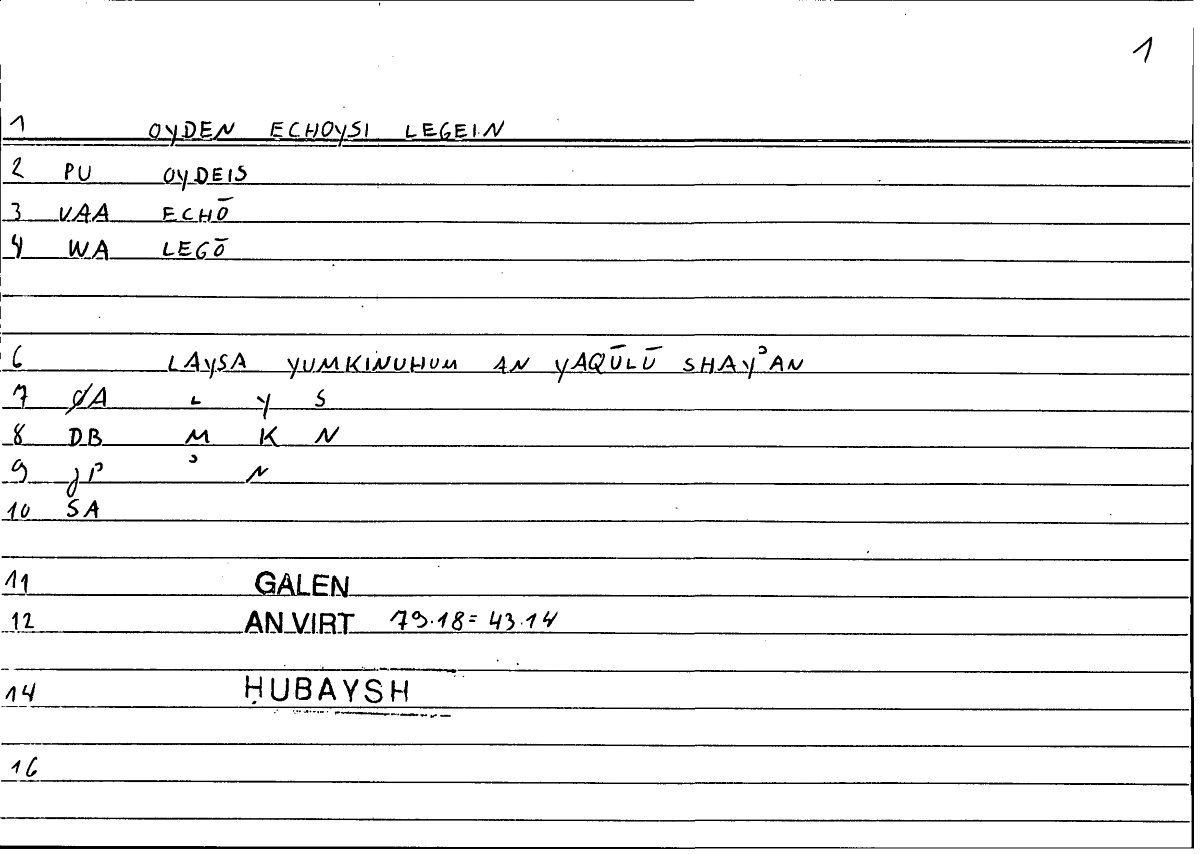 1
1 OYDEN ECHOYSI LEGEIN
2 PU OYDEIS
3 VAA ECHŌ
4 WA LEGŌ
6 LAYSA YUMKINUHUM AN YAQŪLŪ SHAYʾAN
7 ØA L Y S
8 DB M K N
9 JP ʾ N
10 SA
11 GALEN
12 AN VIRT 79.18 = 43.14
14 ḤUBAYSH
16